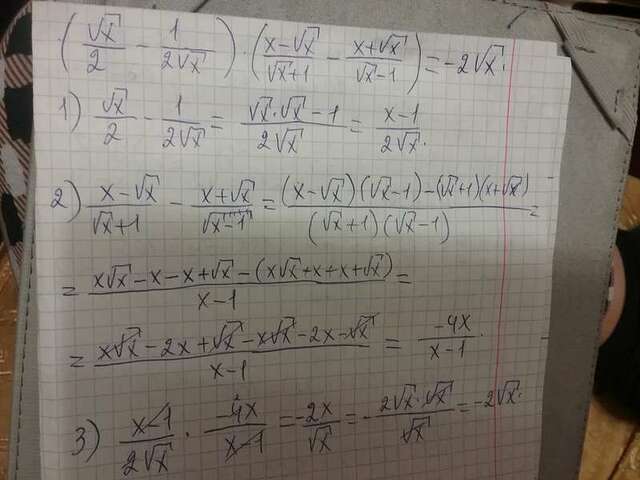 (√x/2 − 1/(2√x)) · ((x−√x)/(√x+1) − (x+√x)/(√x−1)) = −2√x.
1) √x/2 − 1/(2√x) = (√x·√x−1)/(2√x) = (x−1)/(2√x).
2) (x−√x)/(√x+1) − (x+√x)/(√x−1) = ((x−√x)(√x−1)−(√x+1)(x+√x))/((√x+1)(√x−1)) =
= (x√x−x−x+√x−(x√x+x+x+√x))/(x−1) =
= (x√x−2x+√x−x√x−2x−√x)/(x−1) = −4x/(x−1).
3) (x−1)/(2√x) · −4x/(x−1) = −2x/√x = −2√x·√x/√x = −2√x.